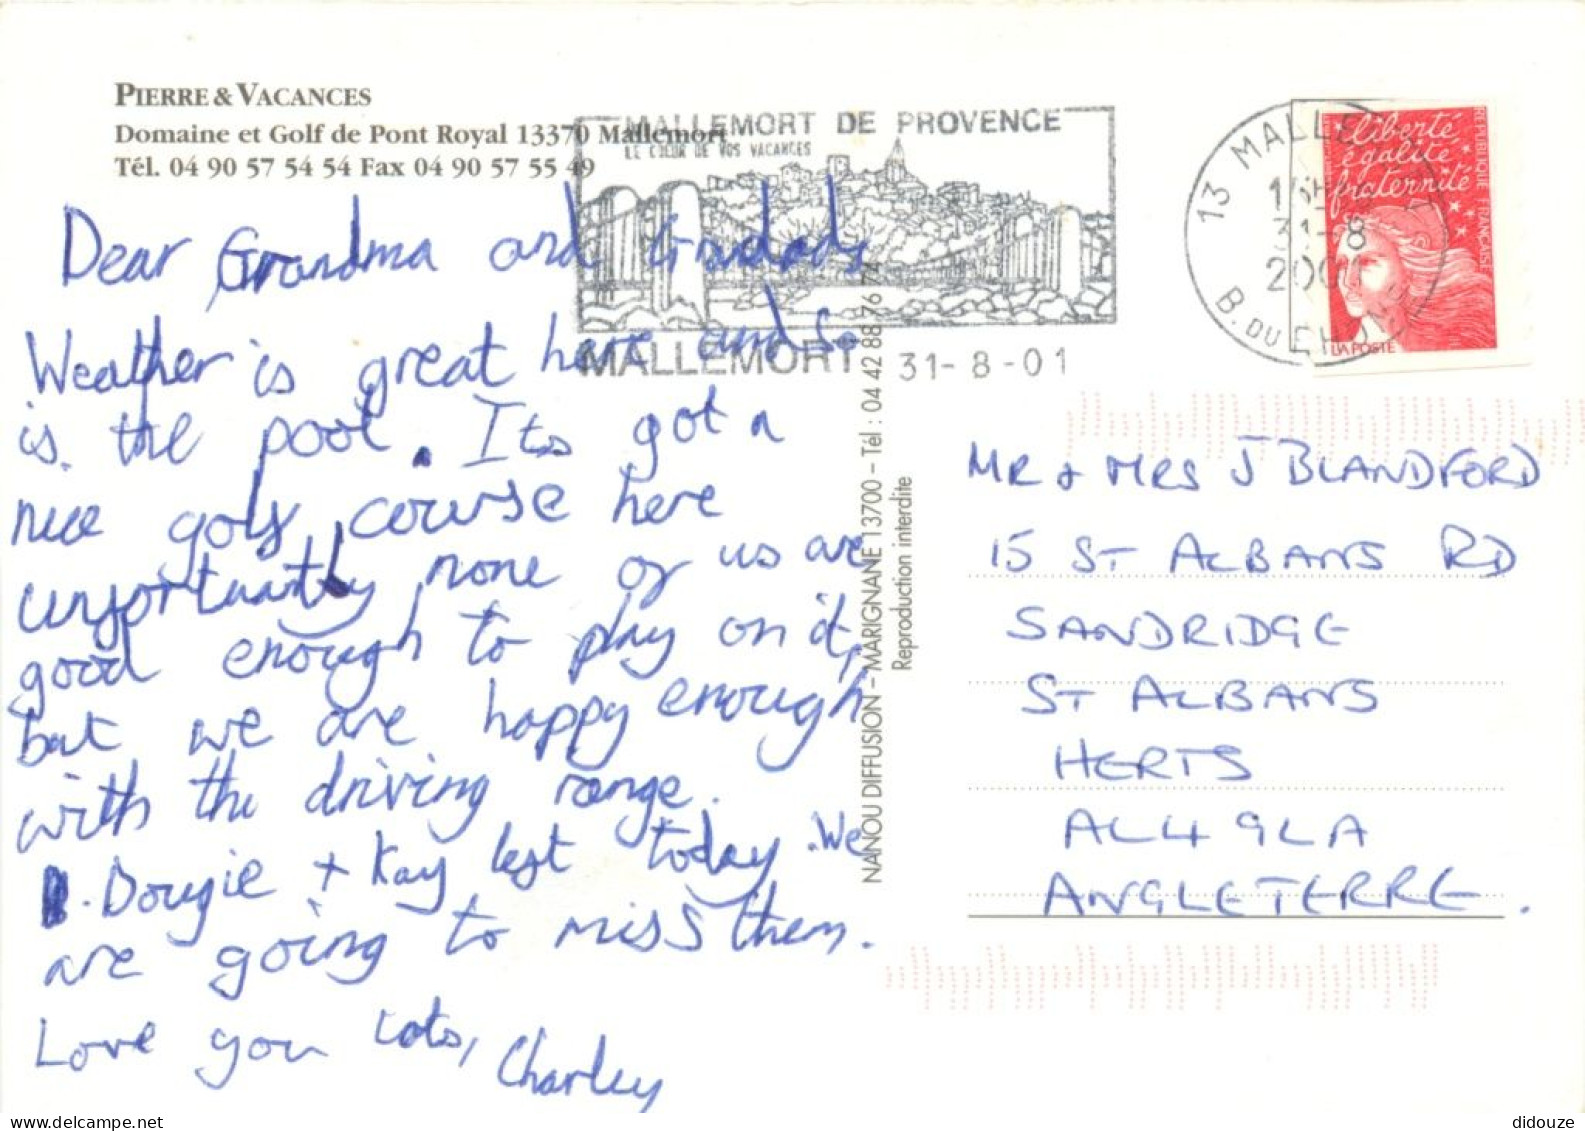 PIERRE & VACANCES
Domaine et Golf de Pont Royal 13370 Mallemort
Tél. 04 90 57 54 54 Fax 04 90 57 55 49
MALLEMORT DE PROVENCE
LE CŒUR DE VOS VACANCES
MALLEMORT 31-8-01
13 MALLEMORT
31-8
B. DU RHONE
liberté
égalité
fraternité
REPUBLIQUE FRANÇAISE
LA POSTE
Dear Grandma and Grandad,
Weather is great here and so
is the pool. Its got a
nice golf course here
unfortuantly none of us are
good enough to play on it,
but we are happy enough
with the driving range.
Dougie + Kay left today. We
are going to miss them.
Love you lots,
Charley
NANOU DIFFUSION – MARIGNANE 13700 – Tél : 04 42 88 76 74
Reproduction interdite
MR & MRS J BLANDFORD
15 ST ALBANS RD
SANDRIDGE
ST ALBANS
HERTS
AL4 9LA
ANGLETERRE.
didouze